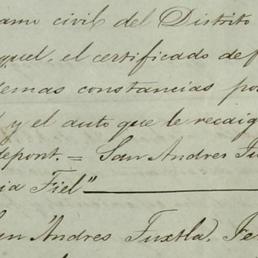 ramo civil del Distrito
quel, el certificado de f
demas constancias po
y el auto que le recaig
depont. = San Andres Tu
ia Fiel"
an Andres Tuxtla, Fe